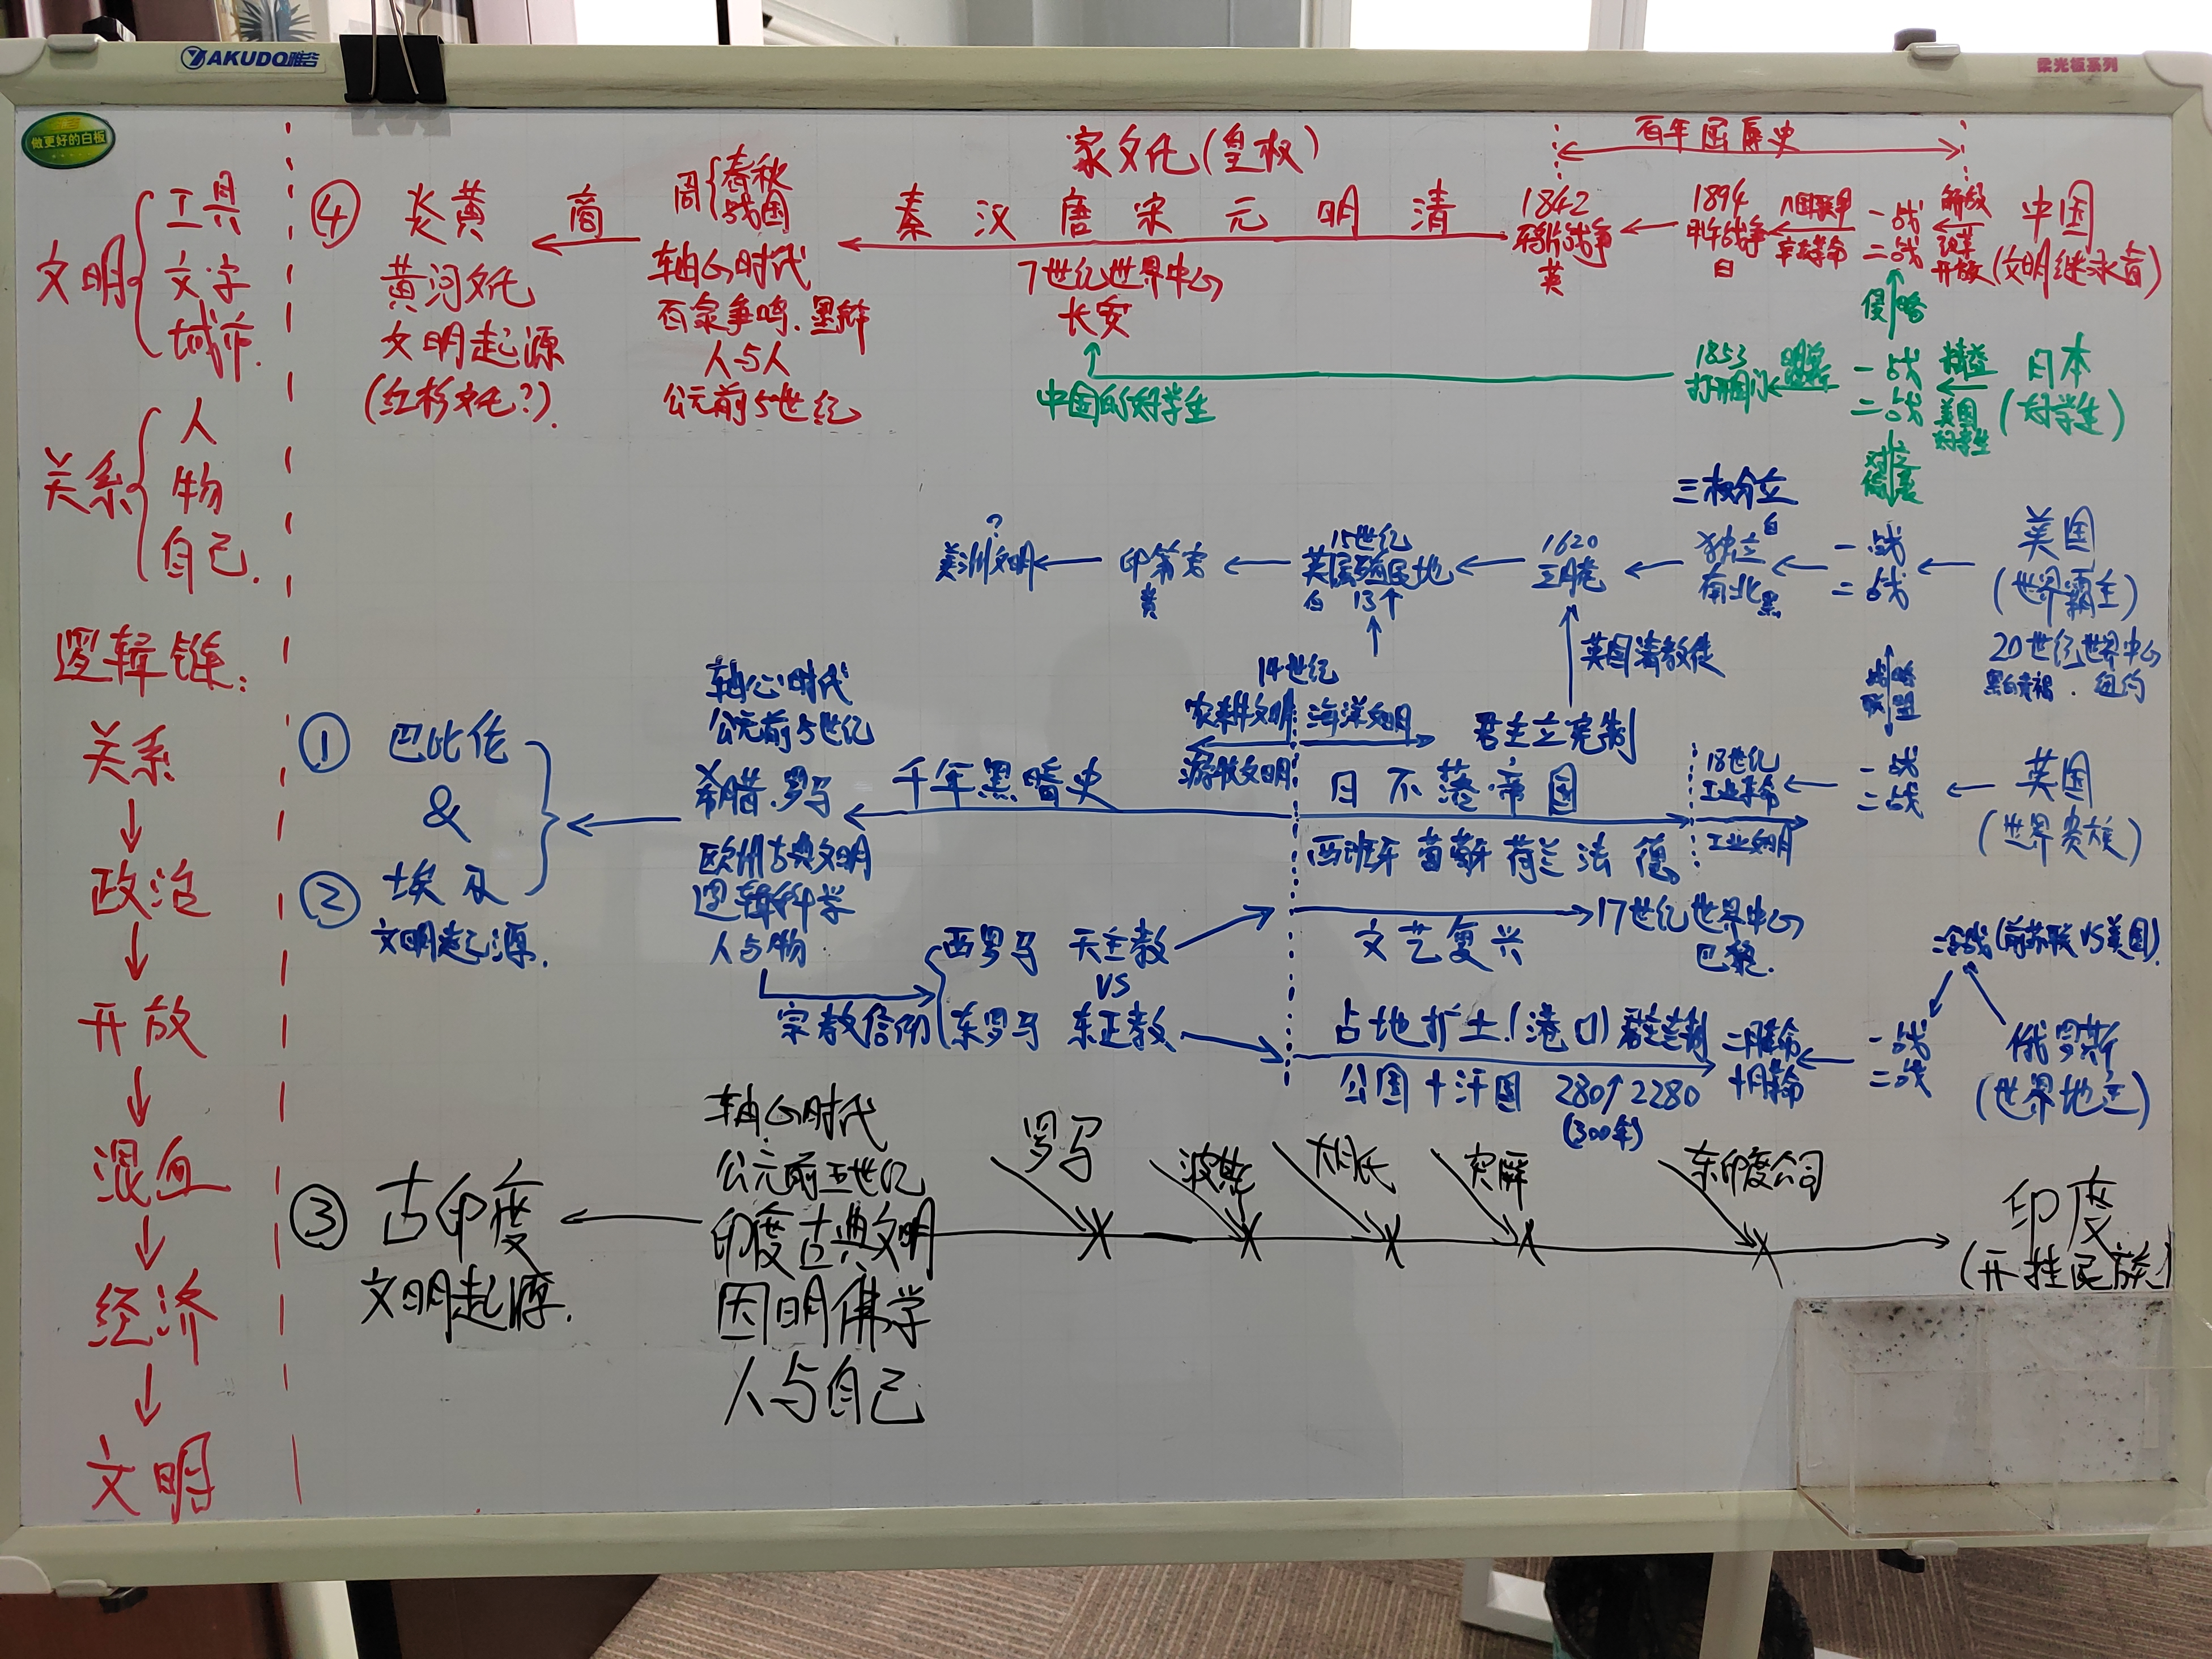 YAKUDO唯谷
柔光板系列
做更好的白板
文明
工具
文字
城市.
关系
人
物
自己.
逻辑链:
关系
↓
政治
↓
开放
↓
混血
↓
经济
↓
文明
家文化(皇权)
百年屈辱史
④ 炎黄 ← 商 周 春秋 战国 ← 秦 汉 唐 宋 元 明 清
黄河文化
文明起源
(红杉文化?).
轴心时代
百家争鸣.墨辩
人与人
公元前5世纪
7世纪世界中心
长安
1842
鸦片战争
英
1894
甲午战争
日
八国联军
辛亥革命
一战
二战
解放
改革
开放
中国
(文明继承者)
侵略
中国的好学生
1853
打开国门
一战
二战
美国
好学生
日本
(好学生)
三权分立
?
美洲文明 ← 印第安
黄
15世纪
英属殖民地
白 13个
1620
五月花
独立 白
南北 黑
一战
二战
美国
(世界霸主)
20世纪世界中心
黑白黄褐.纽约
英国清教徒
战略
联盟
① 巴比伦
&
② 埃及
文明起源.
轴心时代
公元前5世纪
希腊.罗马
欧洲古典文明
逻辑科学
人与物
千年黑暗史
14世纪
农耕文明 海洋文明
游牧文明
君主立宪制
日不落帝国
西班牙 葡萄牙 荷兰 法 德
18世纪
工业革命
工业文明
一战
二战
英国
(世界贵族)
宗教信仰
西罗马 天主教
VS
东罗马 东正教
文艺复兴
17世纪世界中心
巴黎.
冷战(前苏联VS美国).
占地扩土!(港口)
公国+汗国 280↑2280
(300年)
二月革命
十月革命
一战
二战
俄罗斯
(世界地主)
③ 古印度
文明起源.
轴心时代
公元前五世纪
印度古典文明
因明佛学
人与自己
罗马
波斯
大月氏
突厥
东印度公司
印度
(开挂民族)